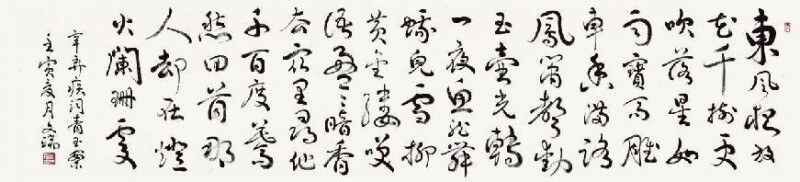 東風夜放
花千樹更
吹落星如
雨寶馬雕
車香滿路
鳳簫聲動
玉壺光轉
一夜魚龍舞
蛾兒雪柳
黃金縷笑
語盈盈暗香
去衆里尋他
千百度驀
然回首那
人却在燈
火斕珊處
辛弃疾词青玉案
壬寅夏月